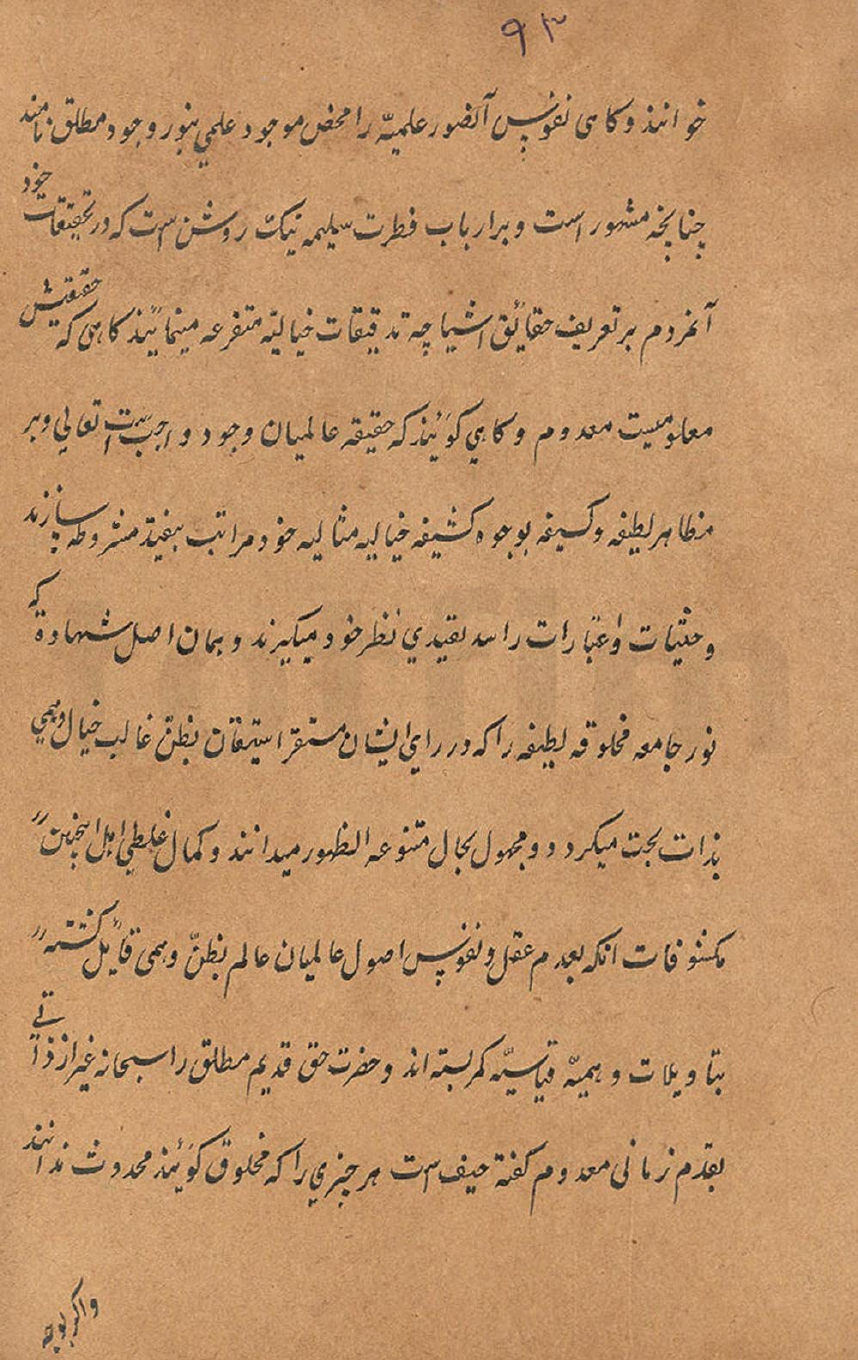 ۹۳
خوانند و کاهی نفوس آنصور علمیّه را محض موجود علمی بنور وجود مطلق نامند
چنانچه مشهور است و بر ارباب فطرت سلیمه نیک روشن است که در تحقیقات خود
آنمردم بر تعریف حقائق اشیا چه تدقیقات خیالیّه متفرعه مینمائیند کاهی که حقیقتش
معلومیست معدوم و کاهی کوئیند که حقیقه عالمیان وجود واجب است تعالی و بر
مظاهر لطیفه و کسیفه بوجوه کشیفه خیالیه مثالیه خود مراتب بیفید مشروطه سازند
و حثیات و اعتبارات را سد بقیدی نظر خود میکیرند و بهمان اصل شهادة که
نور جامعه مخلوقه لطیفه را که در رای ایشان مستقر استیقان بظنّ غالب خیال وهمی
بذات بحت میکردد و مجهول بحال متنوعه الظهور میدانند و کمال غلطی اهل اینچنین
مکشوفات انکه بعدم عقل و نفوس اصول عالمیان عالم بظنّ وهمی قائل کشته
بتاویلات وهمیّه قیاسیّه کمر بسته اند و حضرت حق قدیم مطلق را سبحانه غیر از ذاتی
بقدم زمانی معدوم کفتة حیف است هر چیزی را که مخلوق کوئیند محدوث ندانند
و اکر بوجه